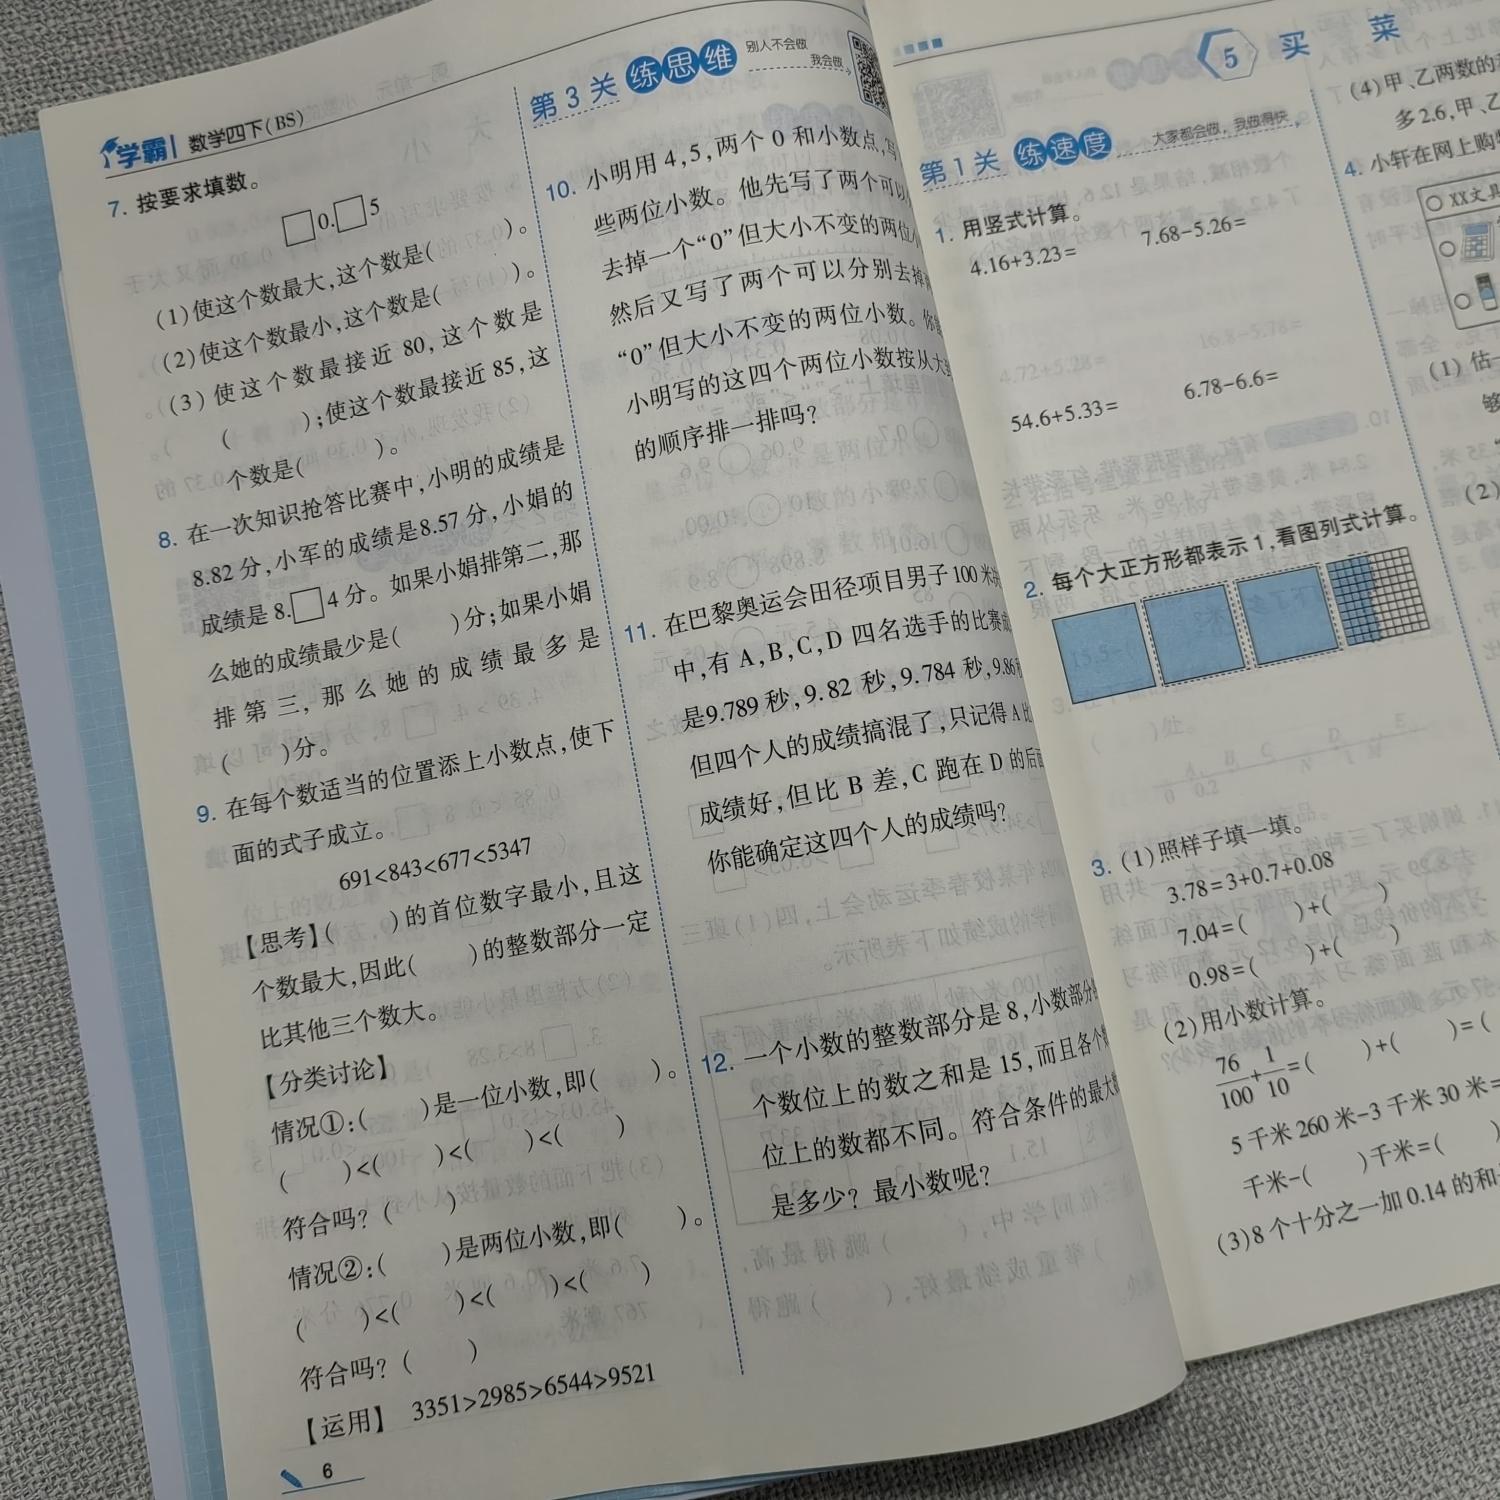 学霸 数学四下(BS)
7. 按要求填数。
□0.□5
(1)使这个数最大,这个数是( )。
(2)使这个数最小,这个数是( )。
(3)使这个数最接近80,这个数是
( );使这个数最接近85,这
个数是( )。
8. 在一次知识抢答比赛中,小明的成绩是
8.82分,小军的成绩是8.57分,小娟的
成绩是8.□4分。如果小娟排第二,那
么她的成绩最少是( )分;如果小娟
排第三,那么她的成绩最多是
( )分。
9. 在每个数适当的位置添上小数点,使下
面的式子成立。
691<843<677<5347
【思考】( )的首位数字最小,且这
个数最大,因此( )的整数部分一定
比其他三个数大。
【分类讨论】
情况①:( )是一位小数,即( )。
( )<( )<( )<( )
符合吗?( )
情况②:( )是两位小数,即( )。
( )<( )<( )<( )
符合吗?( )
【运用】 3351>2985>6544>9521
6
第3关 练思维 别人不会做
我会做
10. 小明用4,5,两个0和小数点,写
些两位小数。他先写了两个可以
去掉一个“0”但大小不变的两位
然后又写了两个可以分别去掉
“0”但大小不变的两位小数。你
小明写的这四个两位小数按从大
的顺序排一排吗?
11. 在巴黎奥运会田径项目男子100米
中,有A,B,C,D四名选手的比赛
是9.789秒,9.82秒,9.784秒,9.86
但四个人的成绩搞混了,只记得A比
成绩好,但比B差,C跑在D的后
你能确定这四个人的成绩吗?
12. 一个小数的整数部分是8,小数部分
个数位上的数之和是15,而且各个
位上的数都不同。符合条件的最大
是多少?最小数呢?
5 买菜
第1关 练速度 大家都会做,我做得快
1. 用竖式计算。
4.16+3.23= 7.68-5.26=
54.6+5.33= 6.78-6.6=
2. 每个大正方形都表示1,看图列式计算。
3. (1)照样子填一填。
3.78=3+0.7+0.08
7.04=( )+( )
0.98=( )+( )
(2)用小数计算。
76/100+1/10=( )+( )=(
5千米260米-3千米30米=
千米-( )千米=( )
(3)8个十分之一加0.14的和
(4)甲、乙两数的
多2.6,甲、乙
4. 小轩在网上购
XX文具
(1)估一
够
(2)